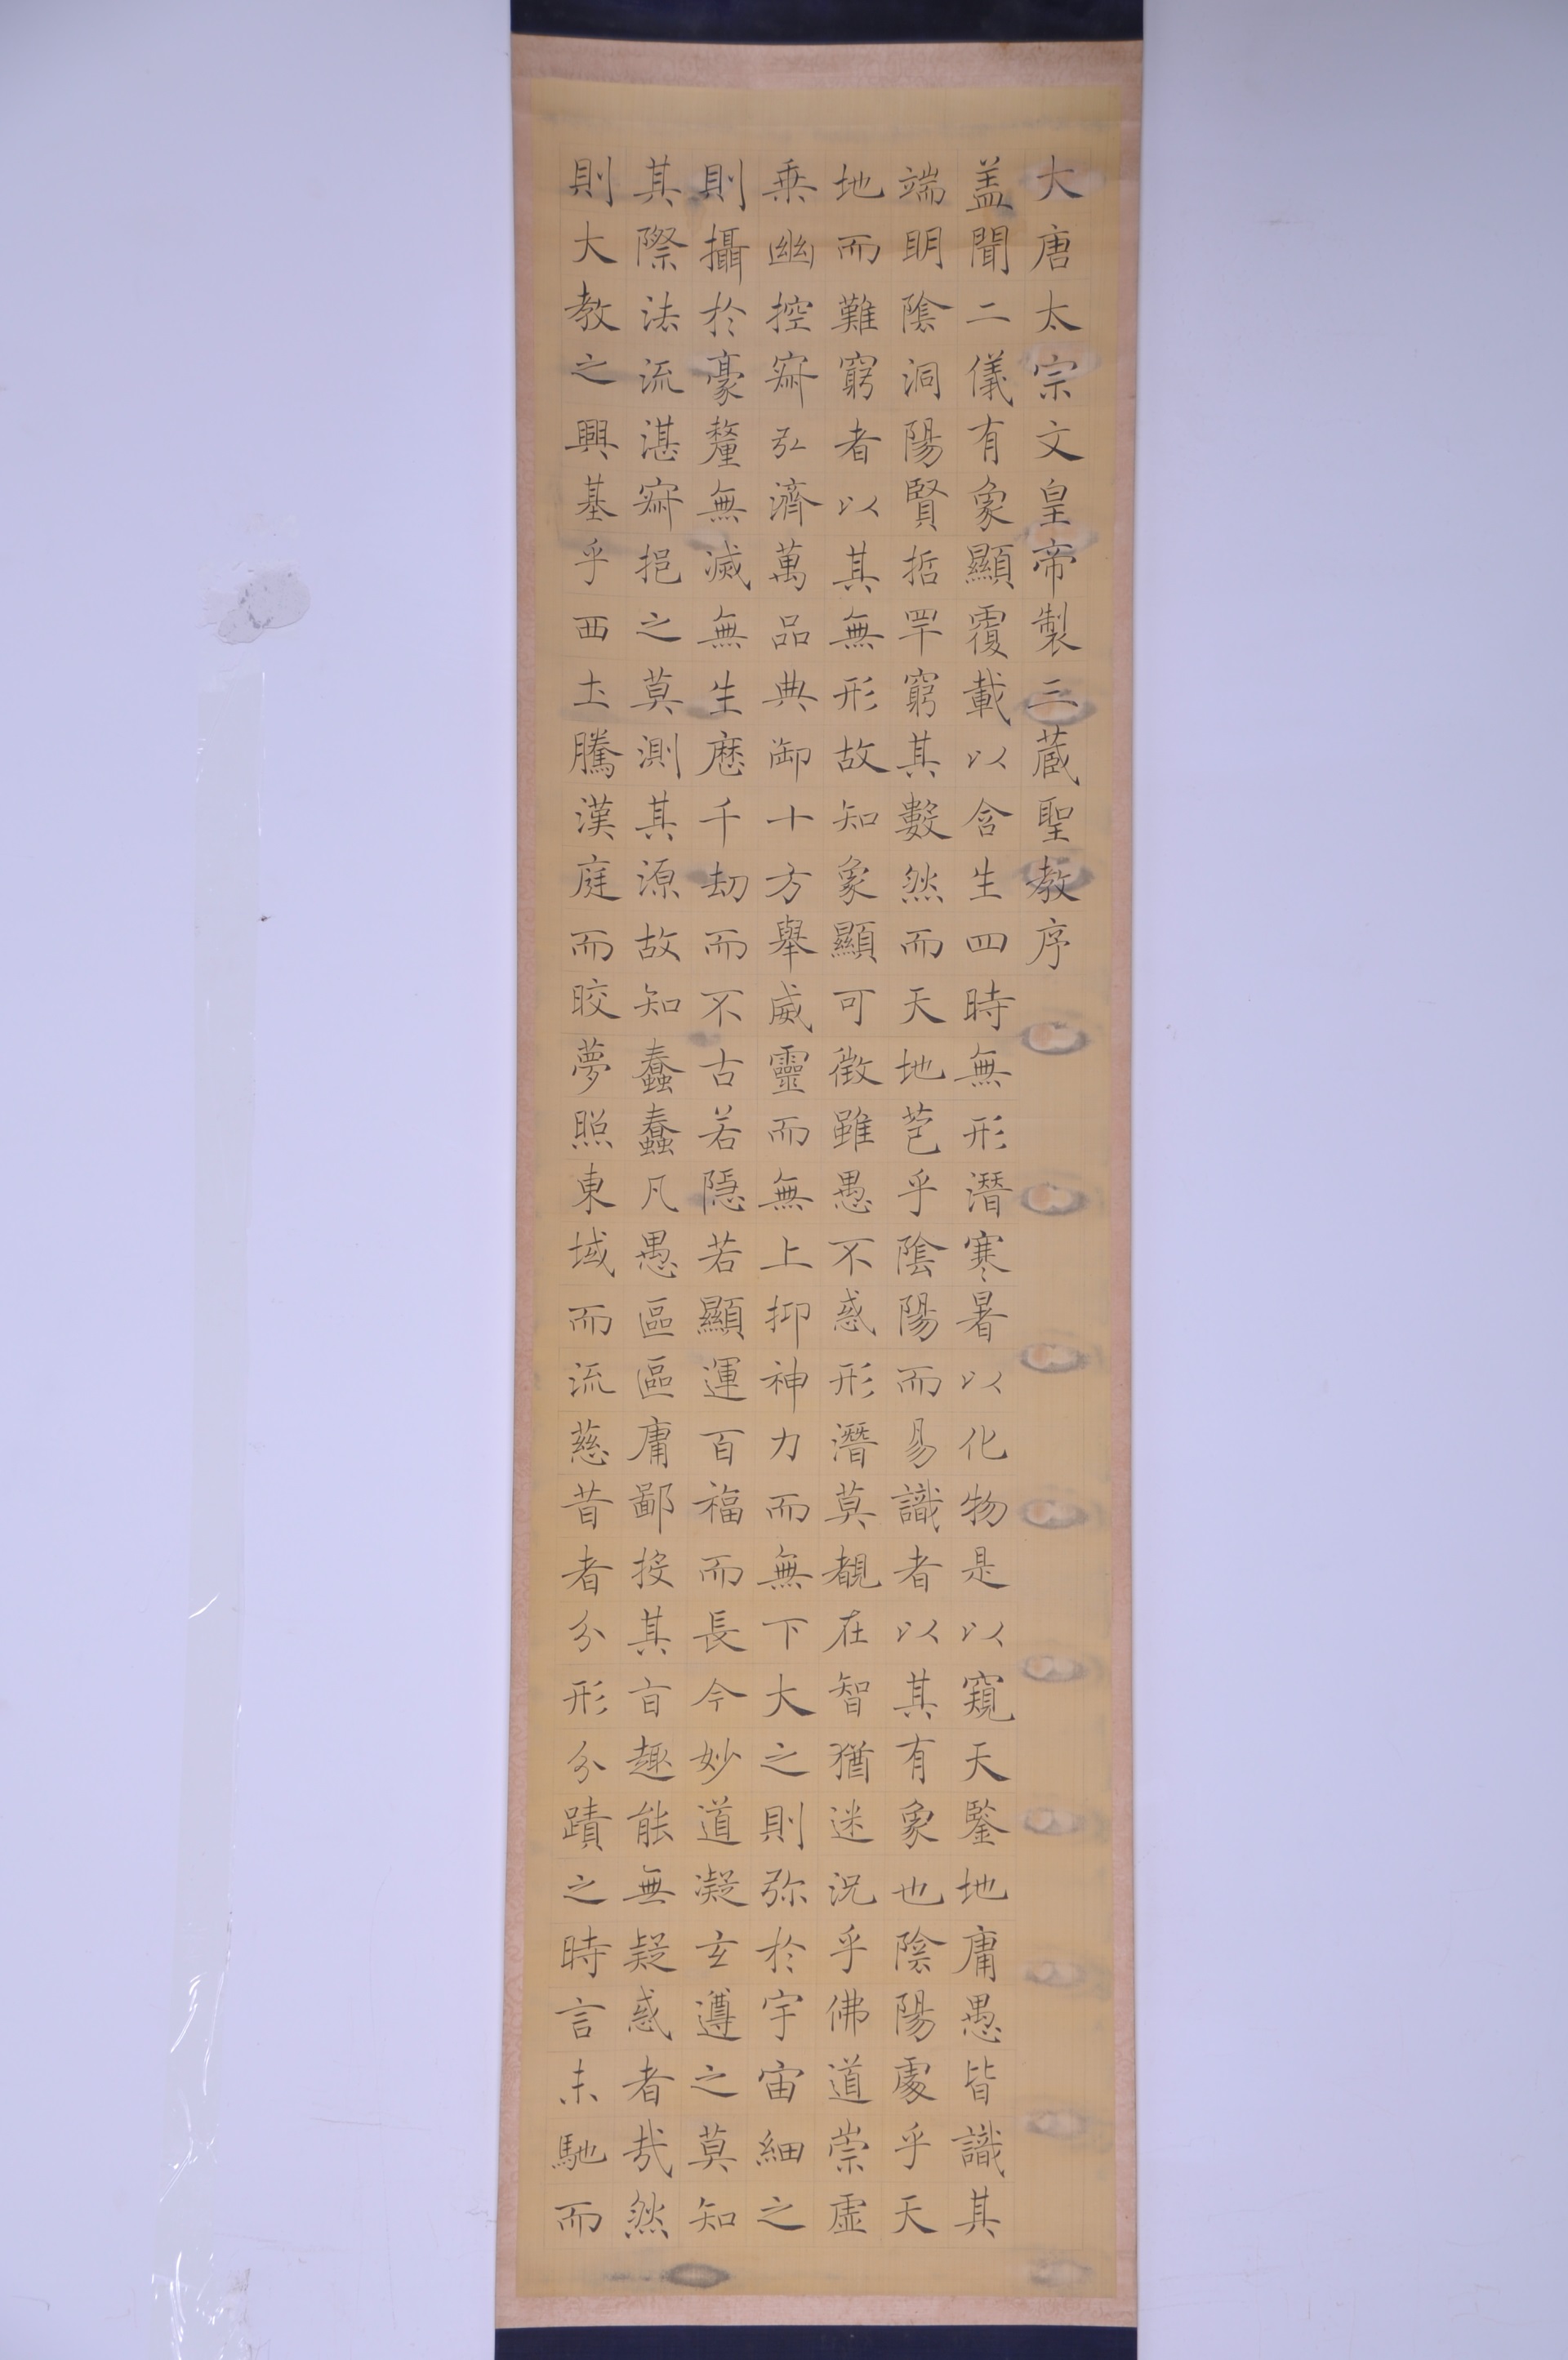 大唐太宗文皇帝製三蔵聖教序
盖聞二儀有象顯覆載以含生四時無形潛寒暑以化物是以窺天鑒地庸愚皆識其
端明陰洞陽賢哲罕窮其數然而天地苞乎陰陽而易識者以其有象也陰陽處乎天
地而難窮者以其無形故知象顯可徵雖愚不惑形潛莫覩在智猶迷況乎佛道崇虛
乗幽控寂弘濟萬品典御十方舉威靈而無上抑神力而無下大之則弥於宇宙細之
則攝於豪釐無滅無生歷千劫而不古若隱若顯運百福而長今妙道凝玄遵之莫知
其際法流湛寂挹之莫測其源故知蠢蠢凡愚區區庸鄙投其旨趣能無疑惑者哉然
則大教之興基乎西土騰漢庭而皎夢照東域而流慈昔者分形分蹟之時言未馳而